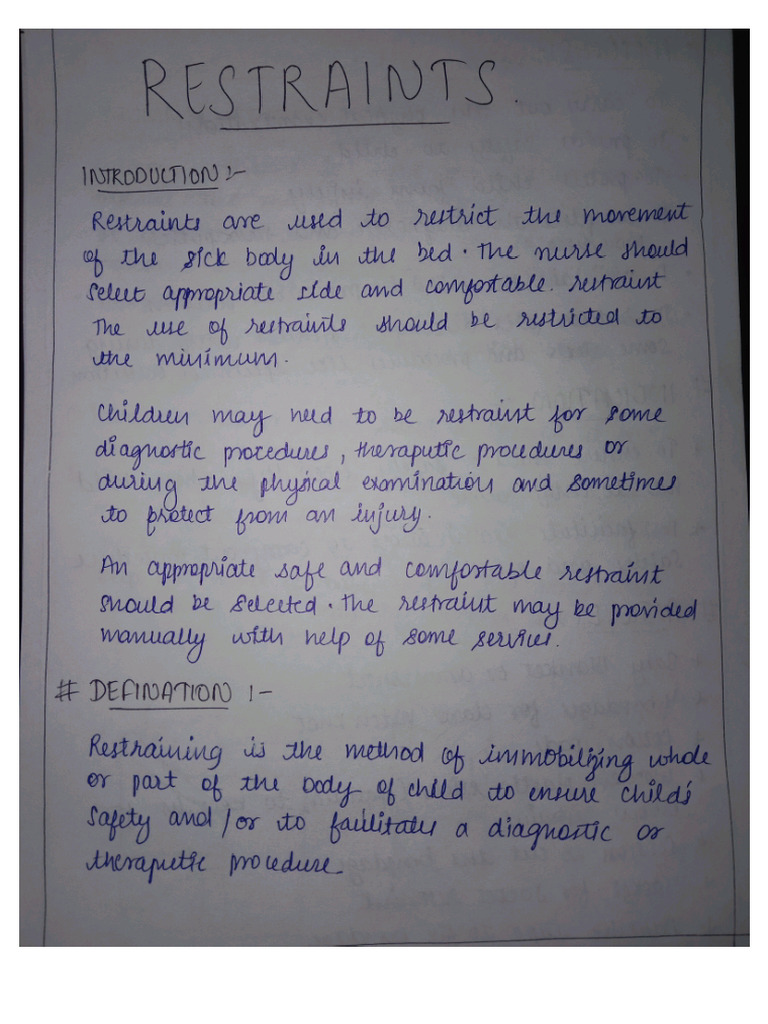 RESTRAINTS.
INTRODUCTION :-
Restraints are used to restrict the movement
of the sick body in the bed. The nurse should
select appropriate side and comfortable. restraint
The use of restraints should be restricted to
the minimum.
Children may need to be restraint for some
diagnostic procedures, theraputic procedures or
during the physical examination and sometimes
to protect from an injury.
An appropriate safe and comfortable restraint
should be selected. The restraint may be provided
manually with help of some services.
# DEFINATION :-
Restraining is the method of immobilizing whole
or part of the body of child to ensure child's
safety and/or to facilitates a diagnostic or
theraputic procedure.